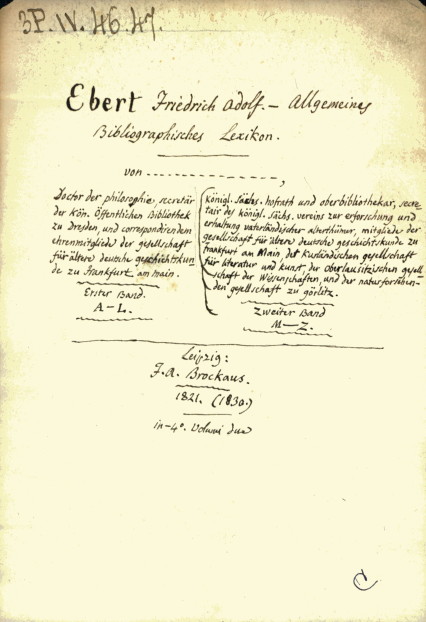 3P. IV. 46. 47.
Ebert Friedrich Adolf. – Allgemeines
Bibliographisches Lexikon.
von - - - - - - - - - - - - - - ,
Doctor der philosophie, secretär
der Kön. Öffentlichen Bibliothek
zu Dresden, und correspondirendem
ehrenmitgliede der gesellschaft
für ältere deutsche geschichtskun
de zu Frankfurt am main.
Erster Band.
A–L.
Königl. Sächs. hofrath und oberbibliothekar, secre-
tair des königl. Sächs. vereins zur erforschung und
erhaltung vaterländischer alterthümer, mitgliede der
gesellschaft für ältere deutsche geschichtskunde zu
Frankfurt am Main, der Kurländischen gesellschaft
für literatur und kunst, der oberlausitzischen gesell
schaft der Wissenschaften, und der naturforschen-
den gesellschaft zu görlitz.
Zweiter Band
M–Z.
Leipzig:
F. A. Brockaus.
1821. (1830.)
in-4°. Volumi due
C